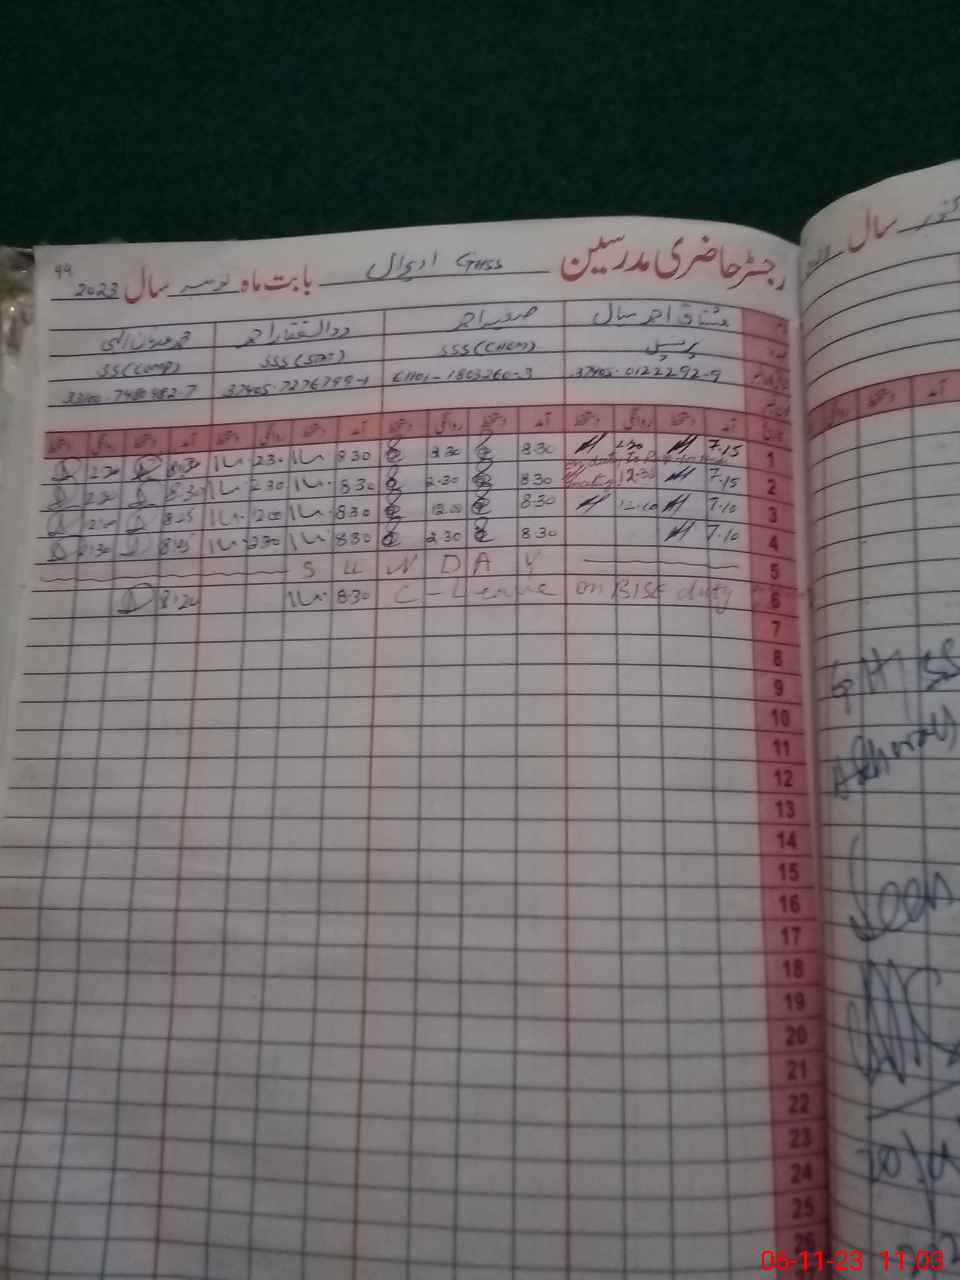 49
رجسٹر حاضری مدرسین GHSS ادہوال بابت ماہ نومبر سال 2023
مشتاق احمد سیال صغیر احمد ذوالفقار احمد
پرنسپل SSS (CHEM) SSS (Stat) SS (Comp)
37405-0122292-9 61101-1803260-3 37405-7276799-1 33100-7480982-7
آمد دستخط روانگی دستخط آمد دستخط روانگی دستخط آمد دستخط روانگی دستخط آمد دستخط روانگی دستخط
1 7.15 8.30 8.30 8.30 2.30
2 7.15 12.30 8.30 2.30 8.30 2.30 8.30
3 7.10 12.10 8.30 12.00 8.30 12.00 8.25
4 7.10 8.30 2.30 8.30 2.30 8.25 2.30
5 SUNDAY
6 on BISE duty C-Leave 8.30 8.20
7
8
9
10
11
12
13
14
15
16
17
18
19
20
21
22
23
24
25
26
سال
آمد دستخط روانگی
GHSS
Seen
06-11-23 11:03